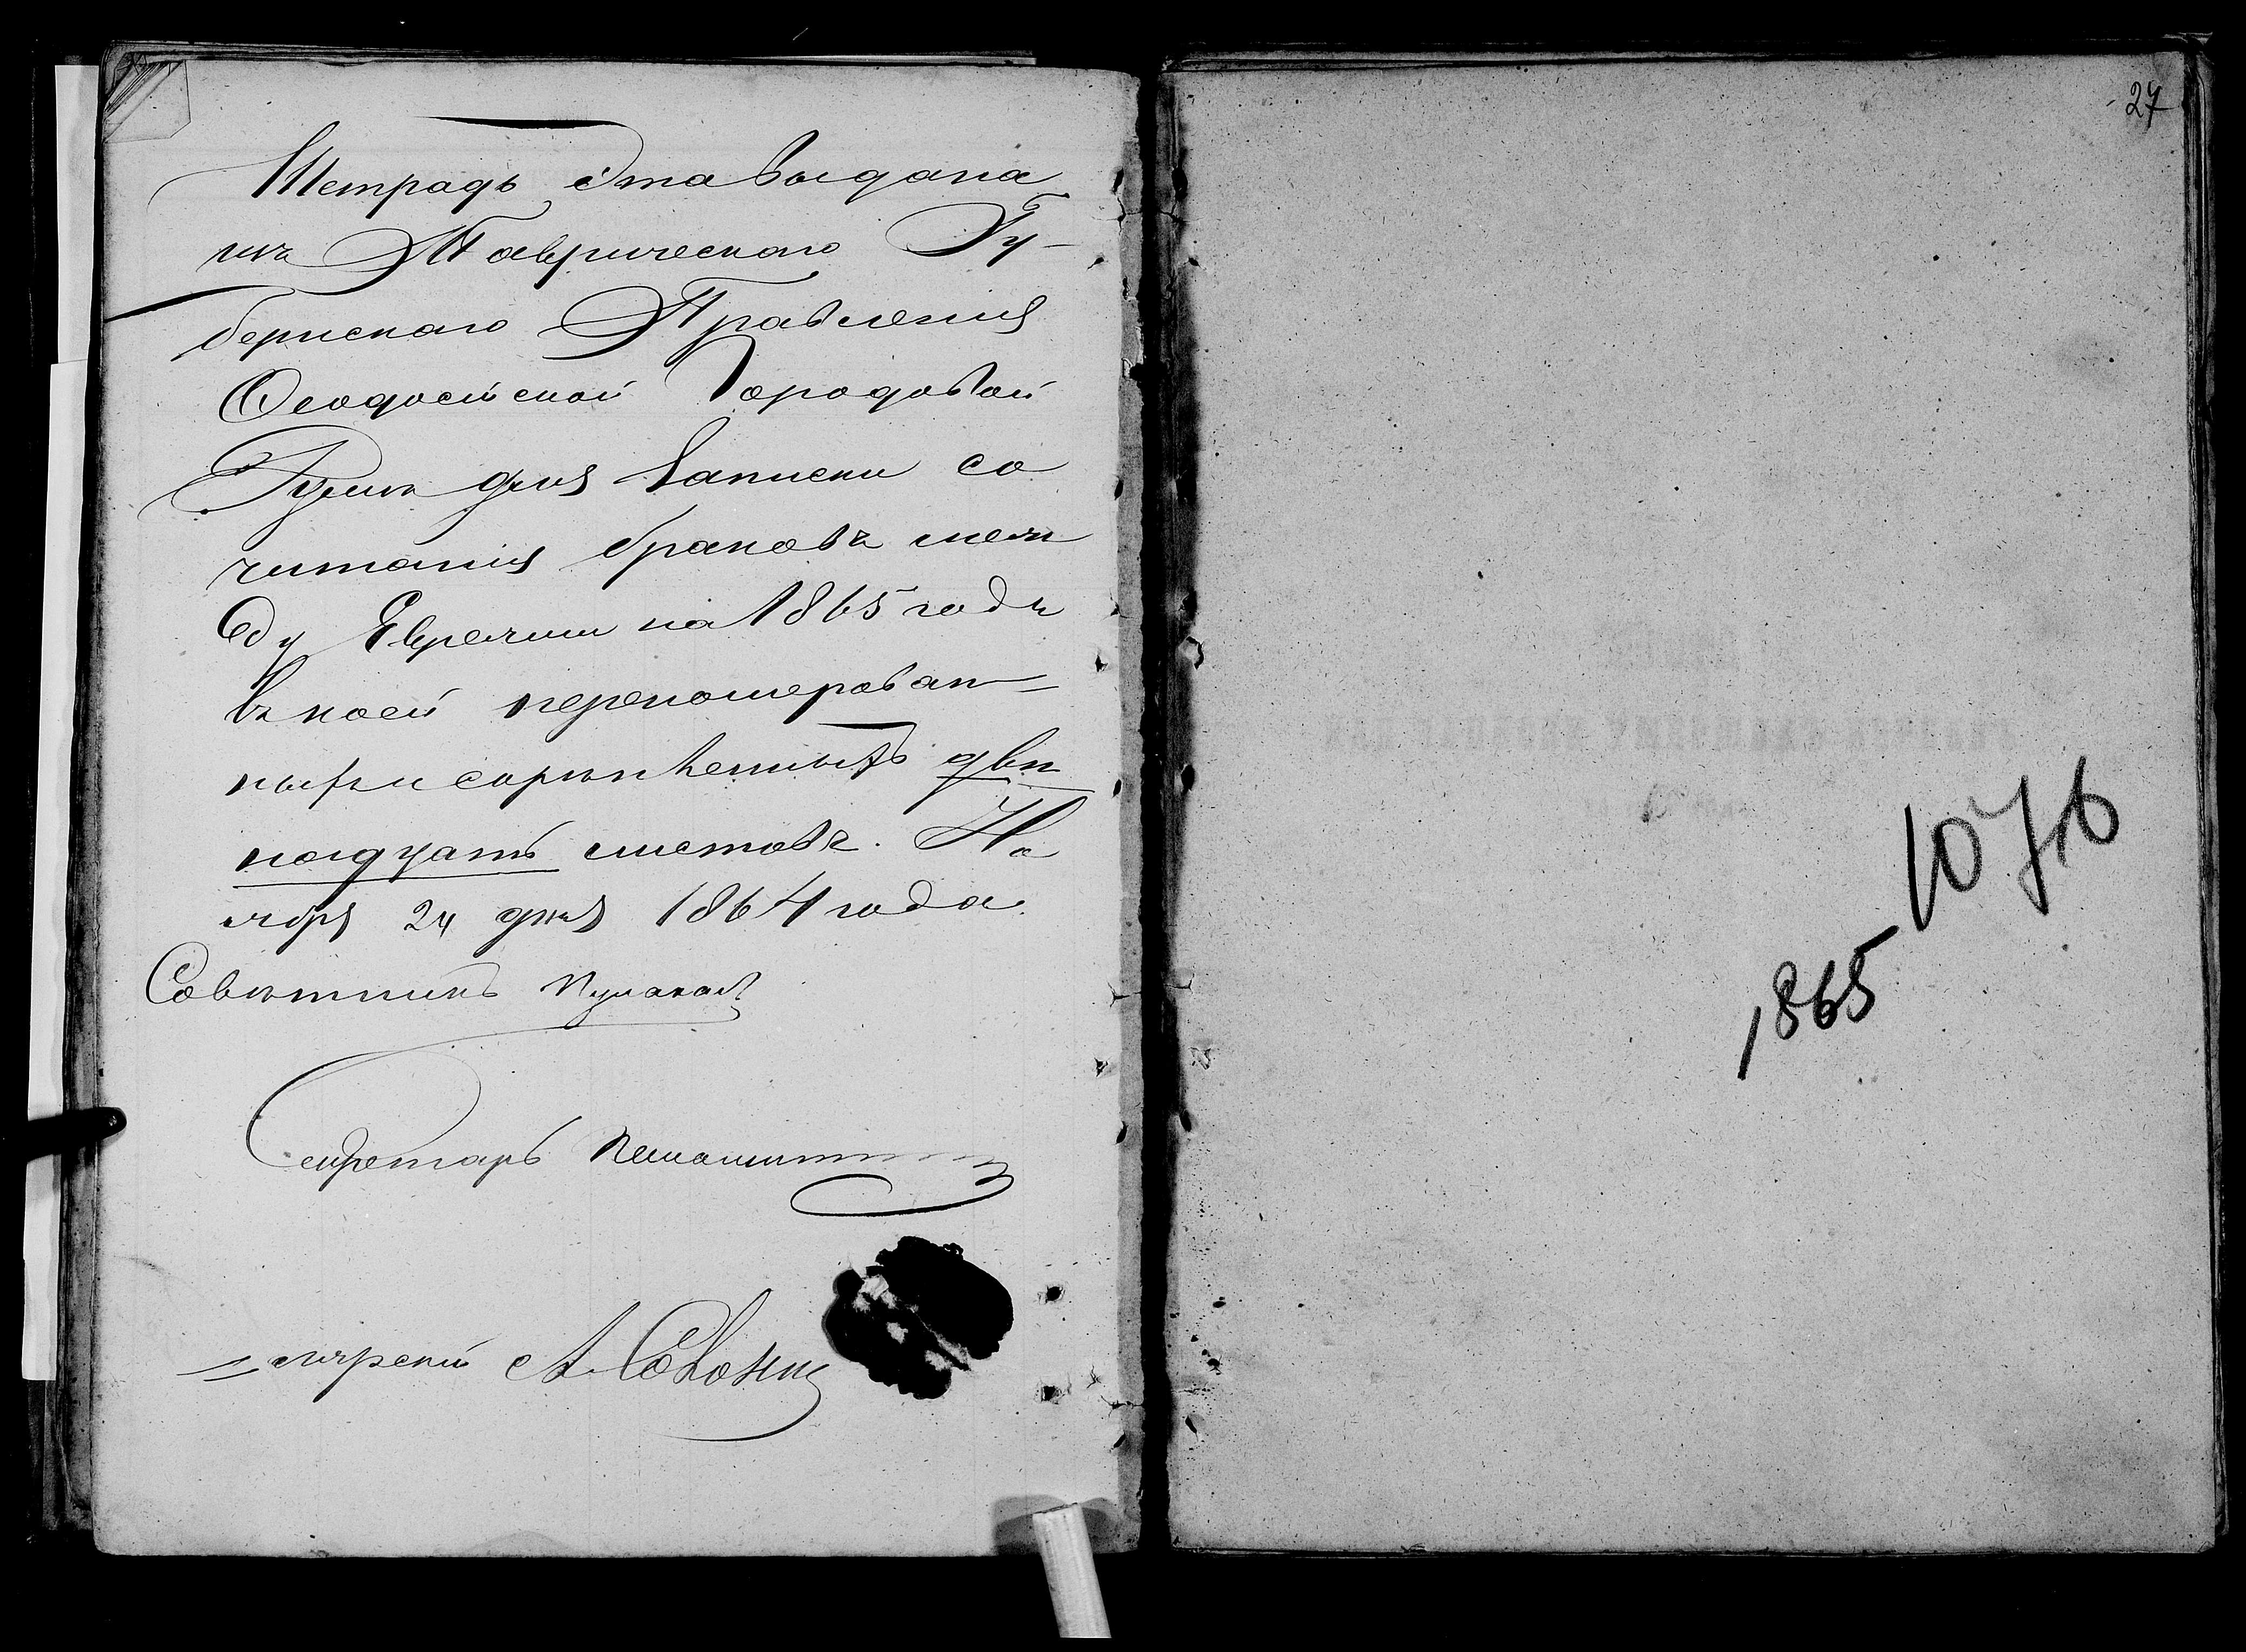 Тетрадь эта выдана
изъ Таврическаго Гу-
бернскаго Правленія
Ѳеодосійской Городовой
Думѣ для записки со
читанія браковъ меж
ду Евреями на 1865 годъ
въ коей переномерован-
ныхъ и скрѣпленныхъ двѣ
надцать листовъ. Но
ября 24 дня 1864 года.
Совѣтникъ
Секретарь
27
1076
1865